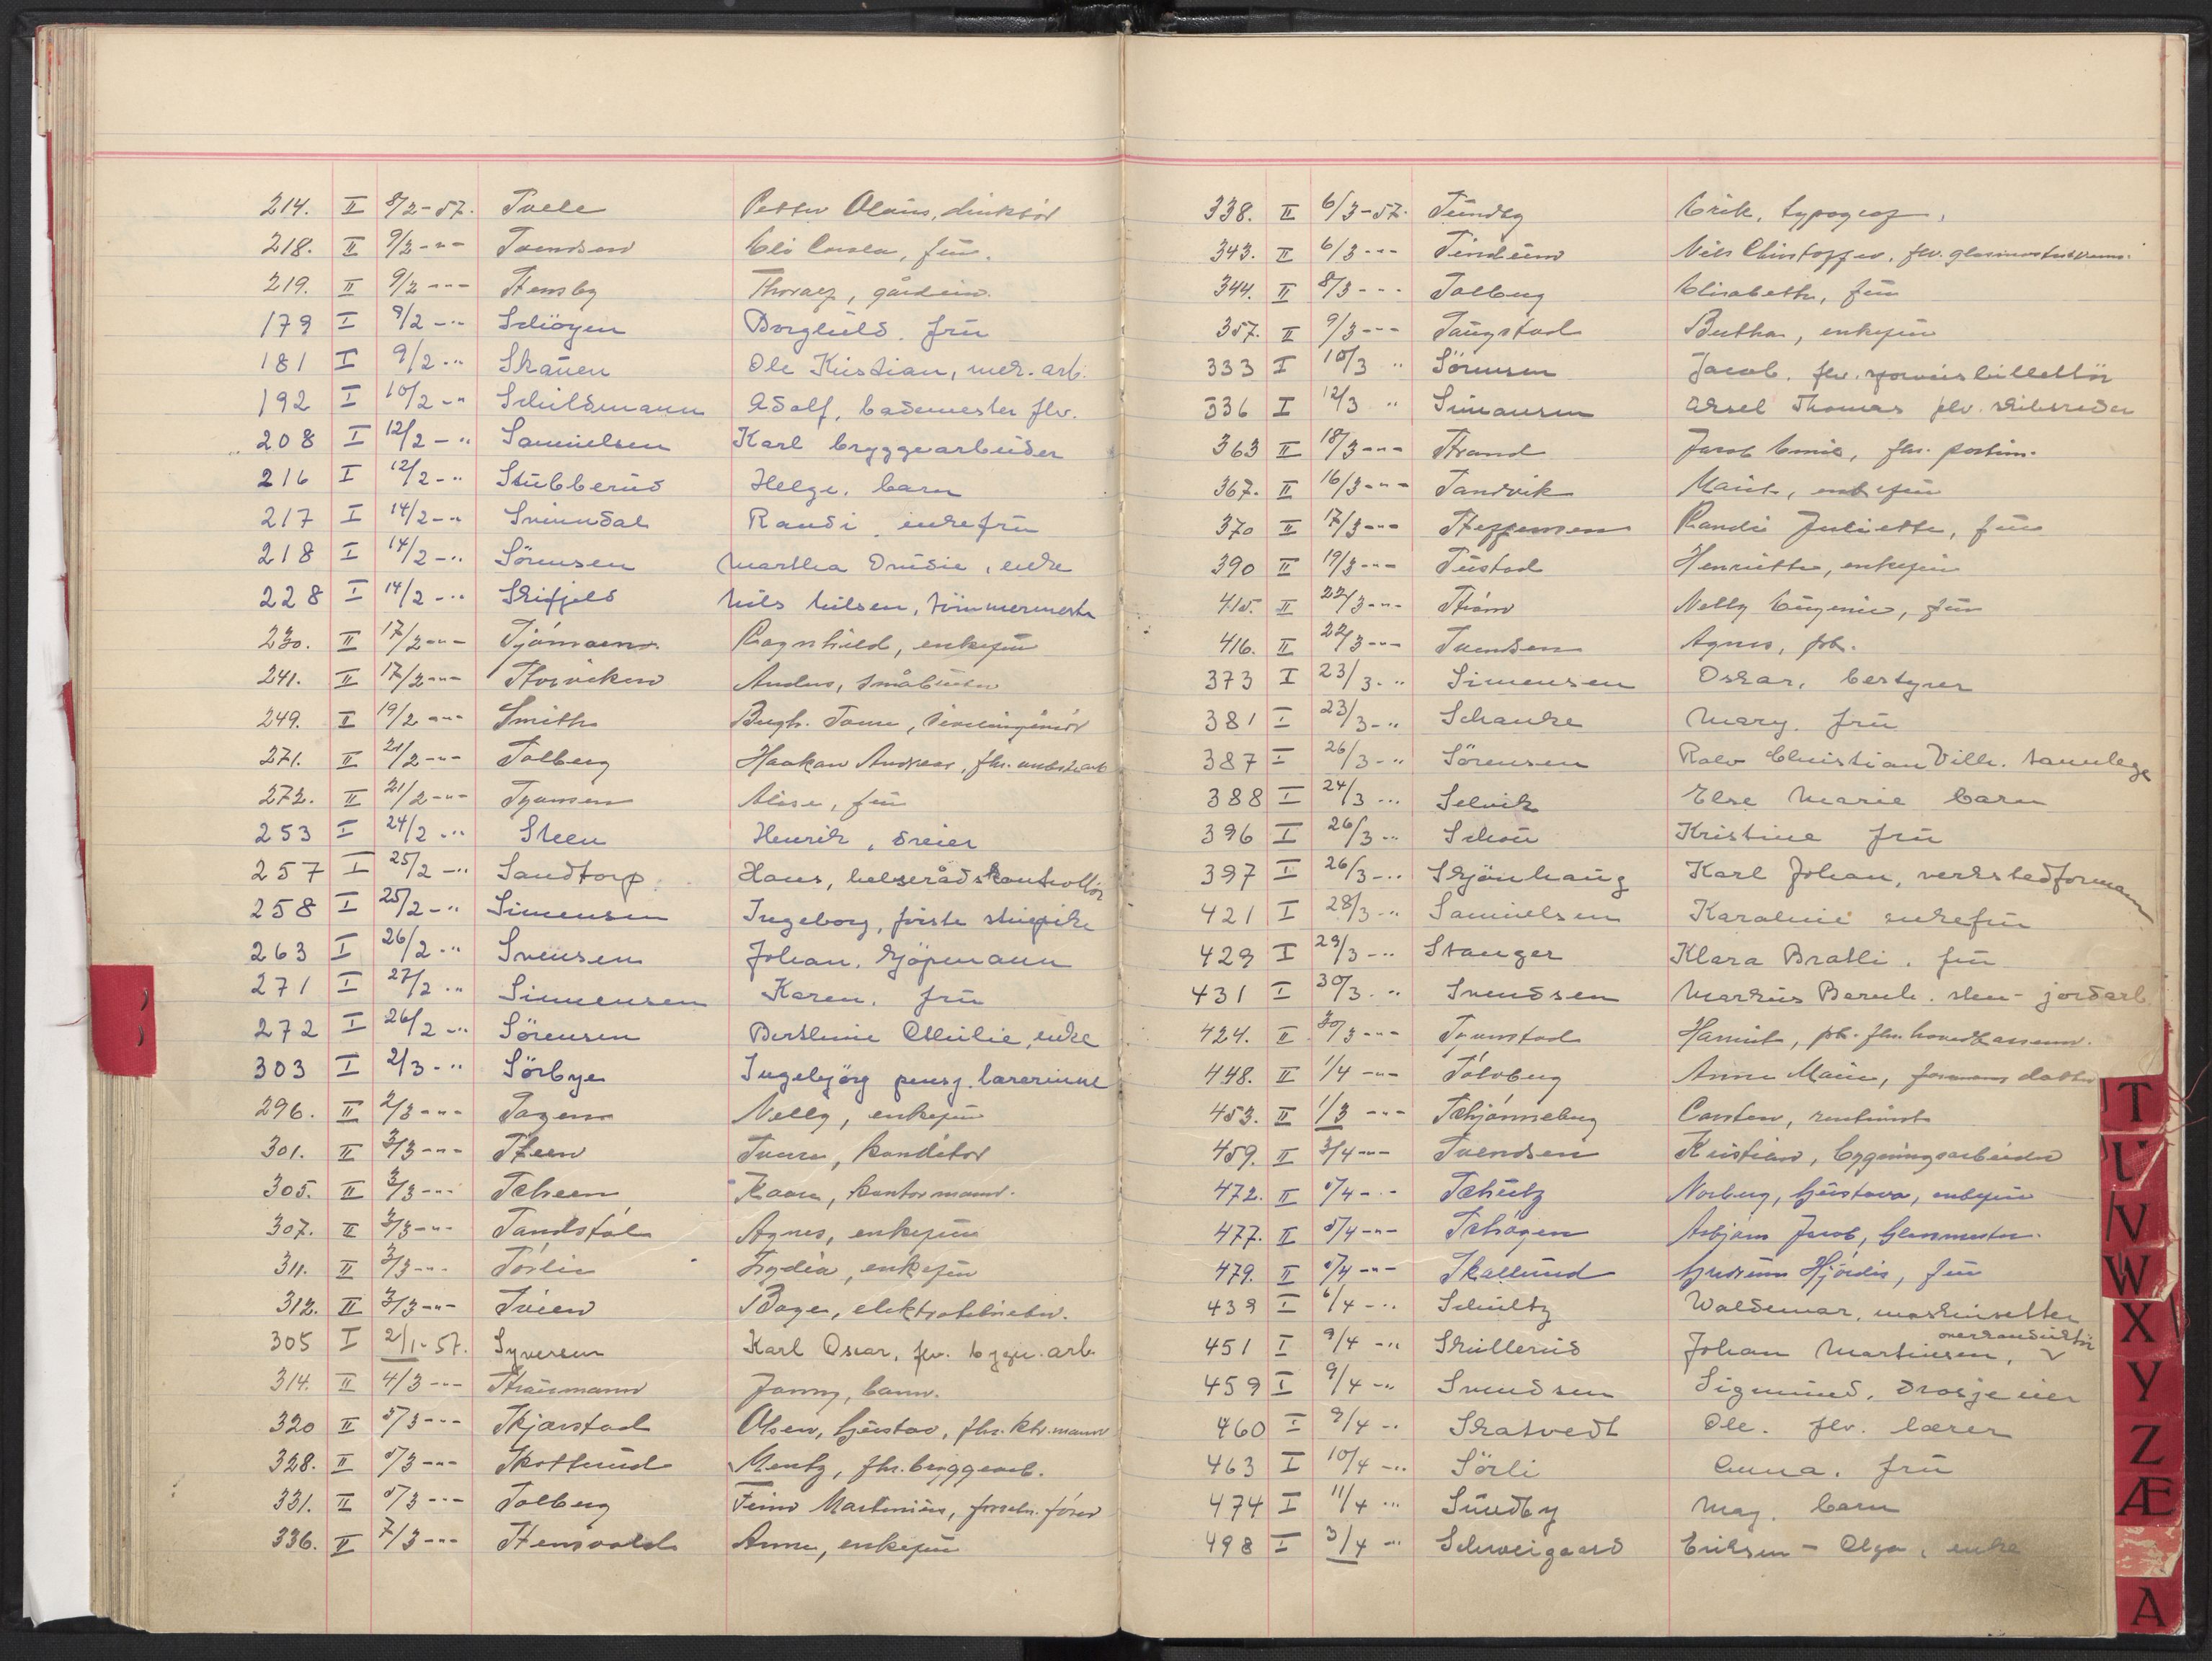 214. II 8/2-57. Svele Petter Olaus, direktör
218. II 9/2 -"- Svendsen Eli Carola, frü.
219. II 9/2 -"- Stensby Thoralf,
179 I 9/2 -" Schiögen Borghild. frü
181 I 9/2 -" Skaüen Ole Kristian, mek. arb.
192 I 10/2 -" Schildmann Adolf, bademester flv.
208 I 12/2 -" Samüelsen Karl bryggearbeider
216 I 12/2 -" Stübberüd Helge. barn
217 I 14/2 -" Svinndal Randi enkefrü
218 I 14/2 -" Sörensen Martha enke
228 I 14/2 -" Skifjeld Nils Nilsen, tömmermester
230. II 17/2 -"- Sjömoen Ragnhild, enkefrü
241. II 17/2 -"- Storvicken Anders, småbrüker
249. II 19/2 -"- Smith Birgh. Tom, sivilingeniör
271. II 21/2 -"- Solberg Haakon Andreas, fhv.
272. II 21/2 -"- Syversen Alise, frü
253 I 24/2 -" Steen Henrik, dreier
257 I 25/2 -" Sandtorp Hans, helserådskontrollör
258 I 25/2 -" Simensen Ingeborg, förste
263 I 26/2 -" Svensen Johan. kjöpmann
271 I 27/2 -" Simensen Karen. frü
272 I 26/2 -" Sörensen Berthine Othilie, enke
303 I 2/3 -" Sörbye Ingebjörg pensj. lærerinne
296. II 2/3 -"- Sagen Nelly, enkefrü
301. II 3/3 -"- Steen Sverre, konditor
305. II 3/3 -"- Scheen Kaare, kontormann.
307. II 3/3 -"- Sandstöl Agnes, enkefrü
311. II 3/3 -"- Sörlie Lydia, enkefrü
312. II 3/3 -"- Sveen Borge, elektrotekniker.
305 I 2/1-57. Syversen Karl Oscar, flv. bygn. arb.
314. II 4/3 -"- Straüsmann Jonny, barn.
320 II 5/3 -"- Skjærstad Olsen, Güstav, fhv. ktr.mann
328. II 5/3 -"- Skotlünd Mentz, fhv. bryggearb.
331. II 5/3 -"- Solberg Martiniüs,
336. II 7/3 -"- Stensvold Anna, enkefrü
338. II 6/3-57. Sündby Erik, typograf.
343. II 6/3 -"- Sindüm Nils Christoffer, flv.
344. II 8/3 -"- Solberg Elisabeth, frü
357. II 9/3 -"- Saügstad Bertha, enkefrü
333 I 10/3 " Sörensen Jacob. flv. sporveisbillettör
336 I 12/3 " Simonsen Aksel Thomas flv. skibsreder
363 II 18/3 -"- Strand Jacob Emil, fhv. postem.
367. II 16/3 -"- Sandvik Marit, enkefrü
370 II 17/3 -"- Steffensen Randi Juliette, frü
390 II 19/3 -"- Süstad Henriette, enkefrü
415. II 22/3 -"- Ström Nelly Eügenie, frü
416. II 22/3 -"- Svendsen Agnes, frk.
373 I 23/3 -" Simensen Oskar, bestyrer
381 I 23/3 -" Schanke Mary. frü
387 I 26/3 -" Sörensen Rolv Christian Vilh. tannlege
388 I 24/3 -" Selvik Else Marie barn
396 I 26/3 -" Schou Kristine frü
397 I 26/3 -" Skjönhaüg Karl Johan, verkstedformann
421 I 28/3 -" Samüelsen Karoline enkefrü
429 I 29/3 -" Stanger Klara Bratli. frü
431 I 30/3 -" Svendsen Marküs Bernh. sten- jordarb.
424. II 30/3 -"- Syverstad Harriet, frk. fhv.
448. II 1/4 -"- Sölvberg Anna Marie, datter
453. II 1/3 -"- Schjönneberg Carsten, rentenist
459. II 3/4 -"- Svendsen Kristian, bygningsarbeider
472. II 5/4 -"- Schültz Norberg, Güstava, enkefrü
477. II 5/4 -"- Schögen Asbjörn Jacob, Glassmester.
479. II 5/4 -"- Skallünd Gudrün Hjördis, frü
439 I 6/4 -" Schültz Waldemar, maskinsetter
451 I 9/4 -" Sküllerüd Johan Martinsen, overkonduktör
459 I 9/4 -" Svendsen Sigmünd. drosjeeier
460 I 9/4 -" Skatvedt Ole. flv. lærer
463 I 10/4 -" Sörli Anna. frü
474 I 11/4 -" Sündby May. barn
498 I 3/4 -" Schweigaard Eriksen - Olga, enke
T
U
V
W
X
Y
Z
Æ
A